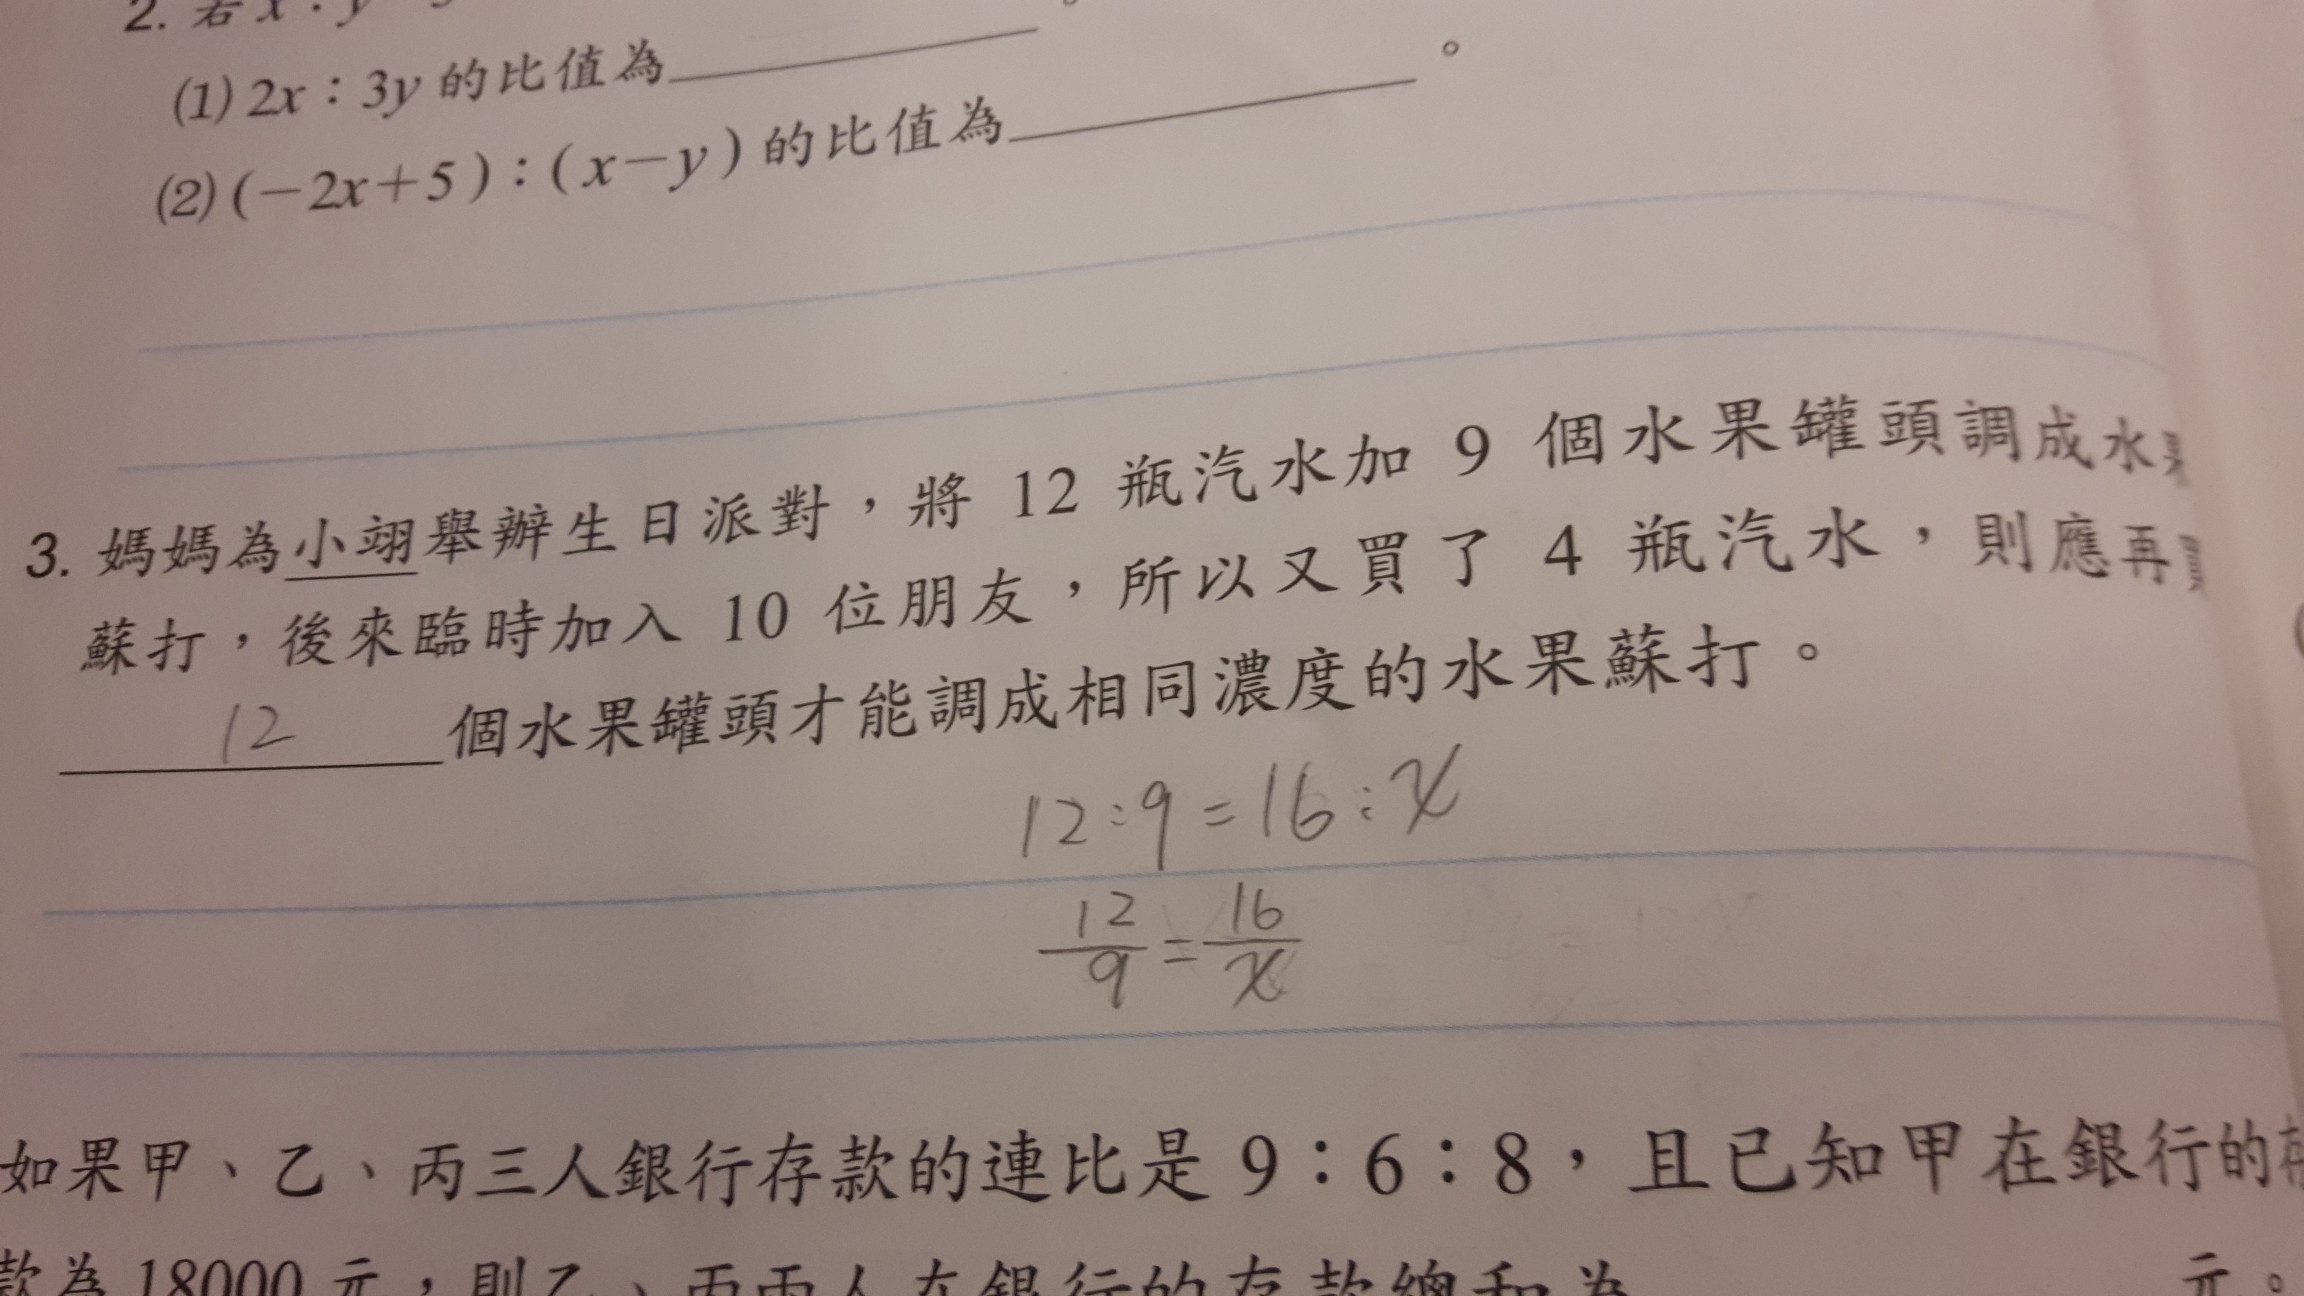 2. 若 x : y
(1) 2x：3y 的比值為
(2) (－2x＋5)：( x－y ) 的比值為 。
3. 媽媽為小翊舉辦生日派對，將 12 瓶汽水加 9 個水果罐頭調成水果
蘇打，後來臨時加入 10 位朋友，所以又買了 4 瓶汽水，則應再買
12 個水果罐頭才能調成相同濃度的水果蘇打。
12 : 9 = 16 : x
12/9 = 16/x
如果甲、乙、丙三人銀行存款的連比是 9：6：8，且已知甲在銀行的存
款為 18000 元，則乙、丙兩人在銀行的存款總和為 元。